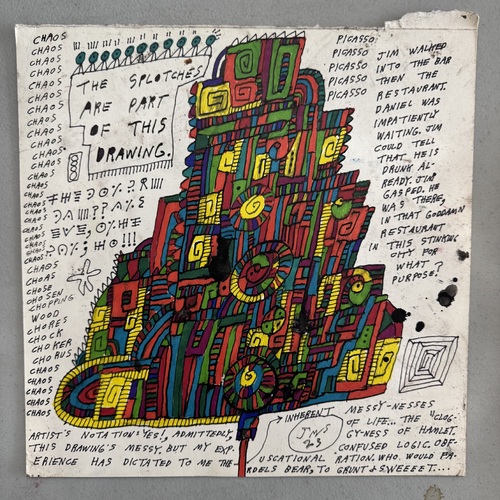 CHAOS
CHAOS
CHAOS
CHAOS
CHAOS
CHAOS
CHAOS
CHAOS
CHAOS
CHAOS
CHAOS
CHAOS
CHAOS
CHAOS
CHAOS
CHAOS
CHAOS
CHAOS
CHAOS
CHAOS
CHAOS
CHOAS
CHOSE
CHOSEN
CHOPPING
WOOD
CHORES
CHOCK
CHOKER
CHORUS
CHAOS
CHAOS
CHAOS
CHAOS
THE SPLOTCHES
ARE PART
OF THIS
DRAWING.
PICASSO
PICASSO
PICASSO
PICASSO
PICASSO
JIM WALKED
INTO THE BAR
THEN THE
RESTAURANT.
DANIEL WAS
IMPATIENTLY
WAITING. JIM
COULD TELL
THAT HE IS
DRUNK AL-
READY. JIM
GASPED. HE
WAS THERE,
IN THAT GODDAMN
RESTAURANT
IN THIS STINKING
CITY FOR
WHAT?
PURPOSE.
ARTIST'S NOTATION: YES!, ADMITTEDLY,
THIS DRAWING'S MESSY, BUT MY EXP-
ERIENCE HAS DICTATED TO ME THE
INHERENT MESSY-NESSES
OF LIFE... THE "CLOG-
GY-NESS OF HAMLET.
CONFUSED LOGIC. OBF-
USCATIONAL RATION. WHO WOULD FA-
RDELS BEAR, TO GRUNT & SWEEEET....
23